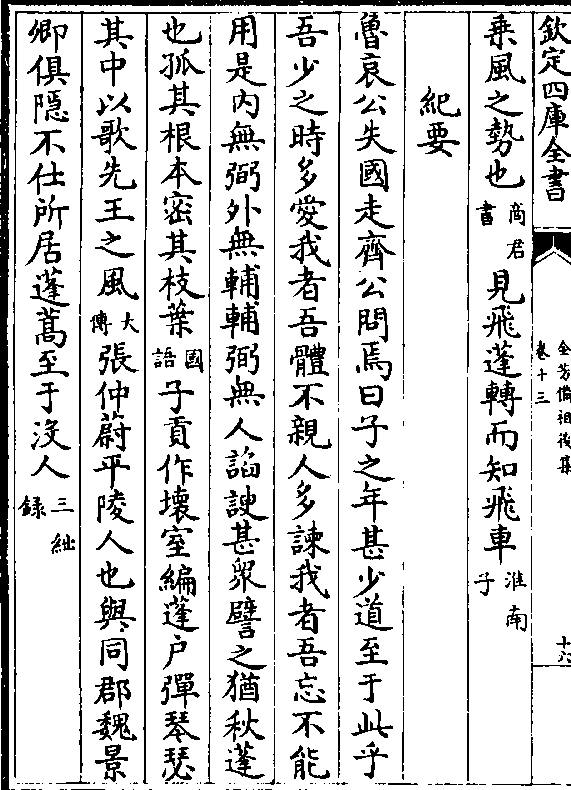 欽定四庫全書
全芳備祖後集
卷十三
十六
乘風之勢也商君書見飛蓬轉而知飛車淮南子
紀要
魯哀公失國走齊公問焉曰子之年甚少道至于此乎
吾少之時多愛我者吾體不親人多諫我者吾忘不能
用是内無弼外無輔輔弼無人諂諛甚衆譬之猶秋蓬
也孤其根本密其枝葉國語子貢作壞室編蓬户彈琴瑟
其中以歌先王之風大傳張仲蔚平陵人也與同郡魏景
卿俱隠不仕所居蓬蒿至于没人三絀録